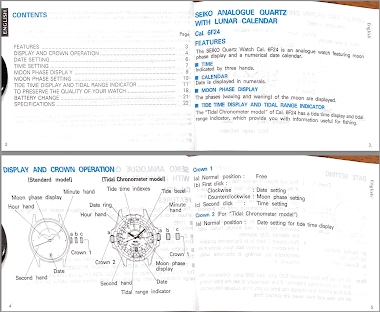 ENGLISH
CONTENTS
Page
FEATURES 3
DISPLAY AND CROWN OPERATION 4
DATE SETTING 6
TIME SETTING 7
MOON PHASE DISPLAY 8
MOON PHASE SETTING 10
TIDE TIME DISPLAY AND TIDAL RANGE INDICATOR 11
TO PRESERVE THE QUALITY OF YOUR WATCH 18
BATTERY CHANGE 21
SPECIFICATIONS 22
2
SEIKO ANALOGUE QUARTZ
WITH LUNAR CALENDAR
Cal. 6F24
FEATURES
The SEIKO Quartz Watch Cal. 6F24 is an analogue watch featuring moon
phase display and a numerical date calendar.
■ TIME
Indicated by three hands.
■ CALENDAR
Date is displayed in numerals.
■ MOON PHASE DISPLAY
The phases (waxing and waning) of the moon are displayed.
■ TIDE TIME DISPLAY AND TIDAL RANGE INDICATOR
The "Tidal Chronometer model" of Cal. 6F24 has a tide time display and tidal
range indicator, which provide you with information useful for fishing.
English
3
DISPLAY AND CROWN OPERATION
(Standard model)
Moon phase display
Minute hand
Hour hand
a b c
Crown 1
Date
Second hand
(Tidal Chronometer model)
Tide time indexes
Tide bezel
Date ring
Minute hand
Hour hand
a b c
Crown 1
Crown 2
Moon phase display
Date
Second hand
Tidal range indicator
4
Crown 1
(a) Normal position : Free
(b) First click :
Clockwise : Date setting
Counterclockwise : Moon phase setting
(c) Second click : Time setting
Crown 2 (For "Tidal Chronometer model")
(a) Normal position : Date setting for tide time display
English
5